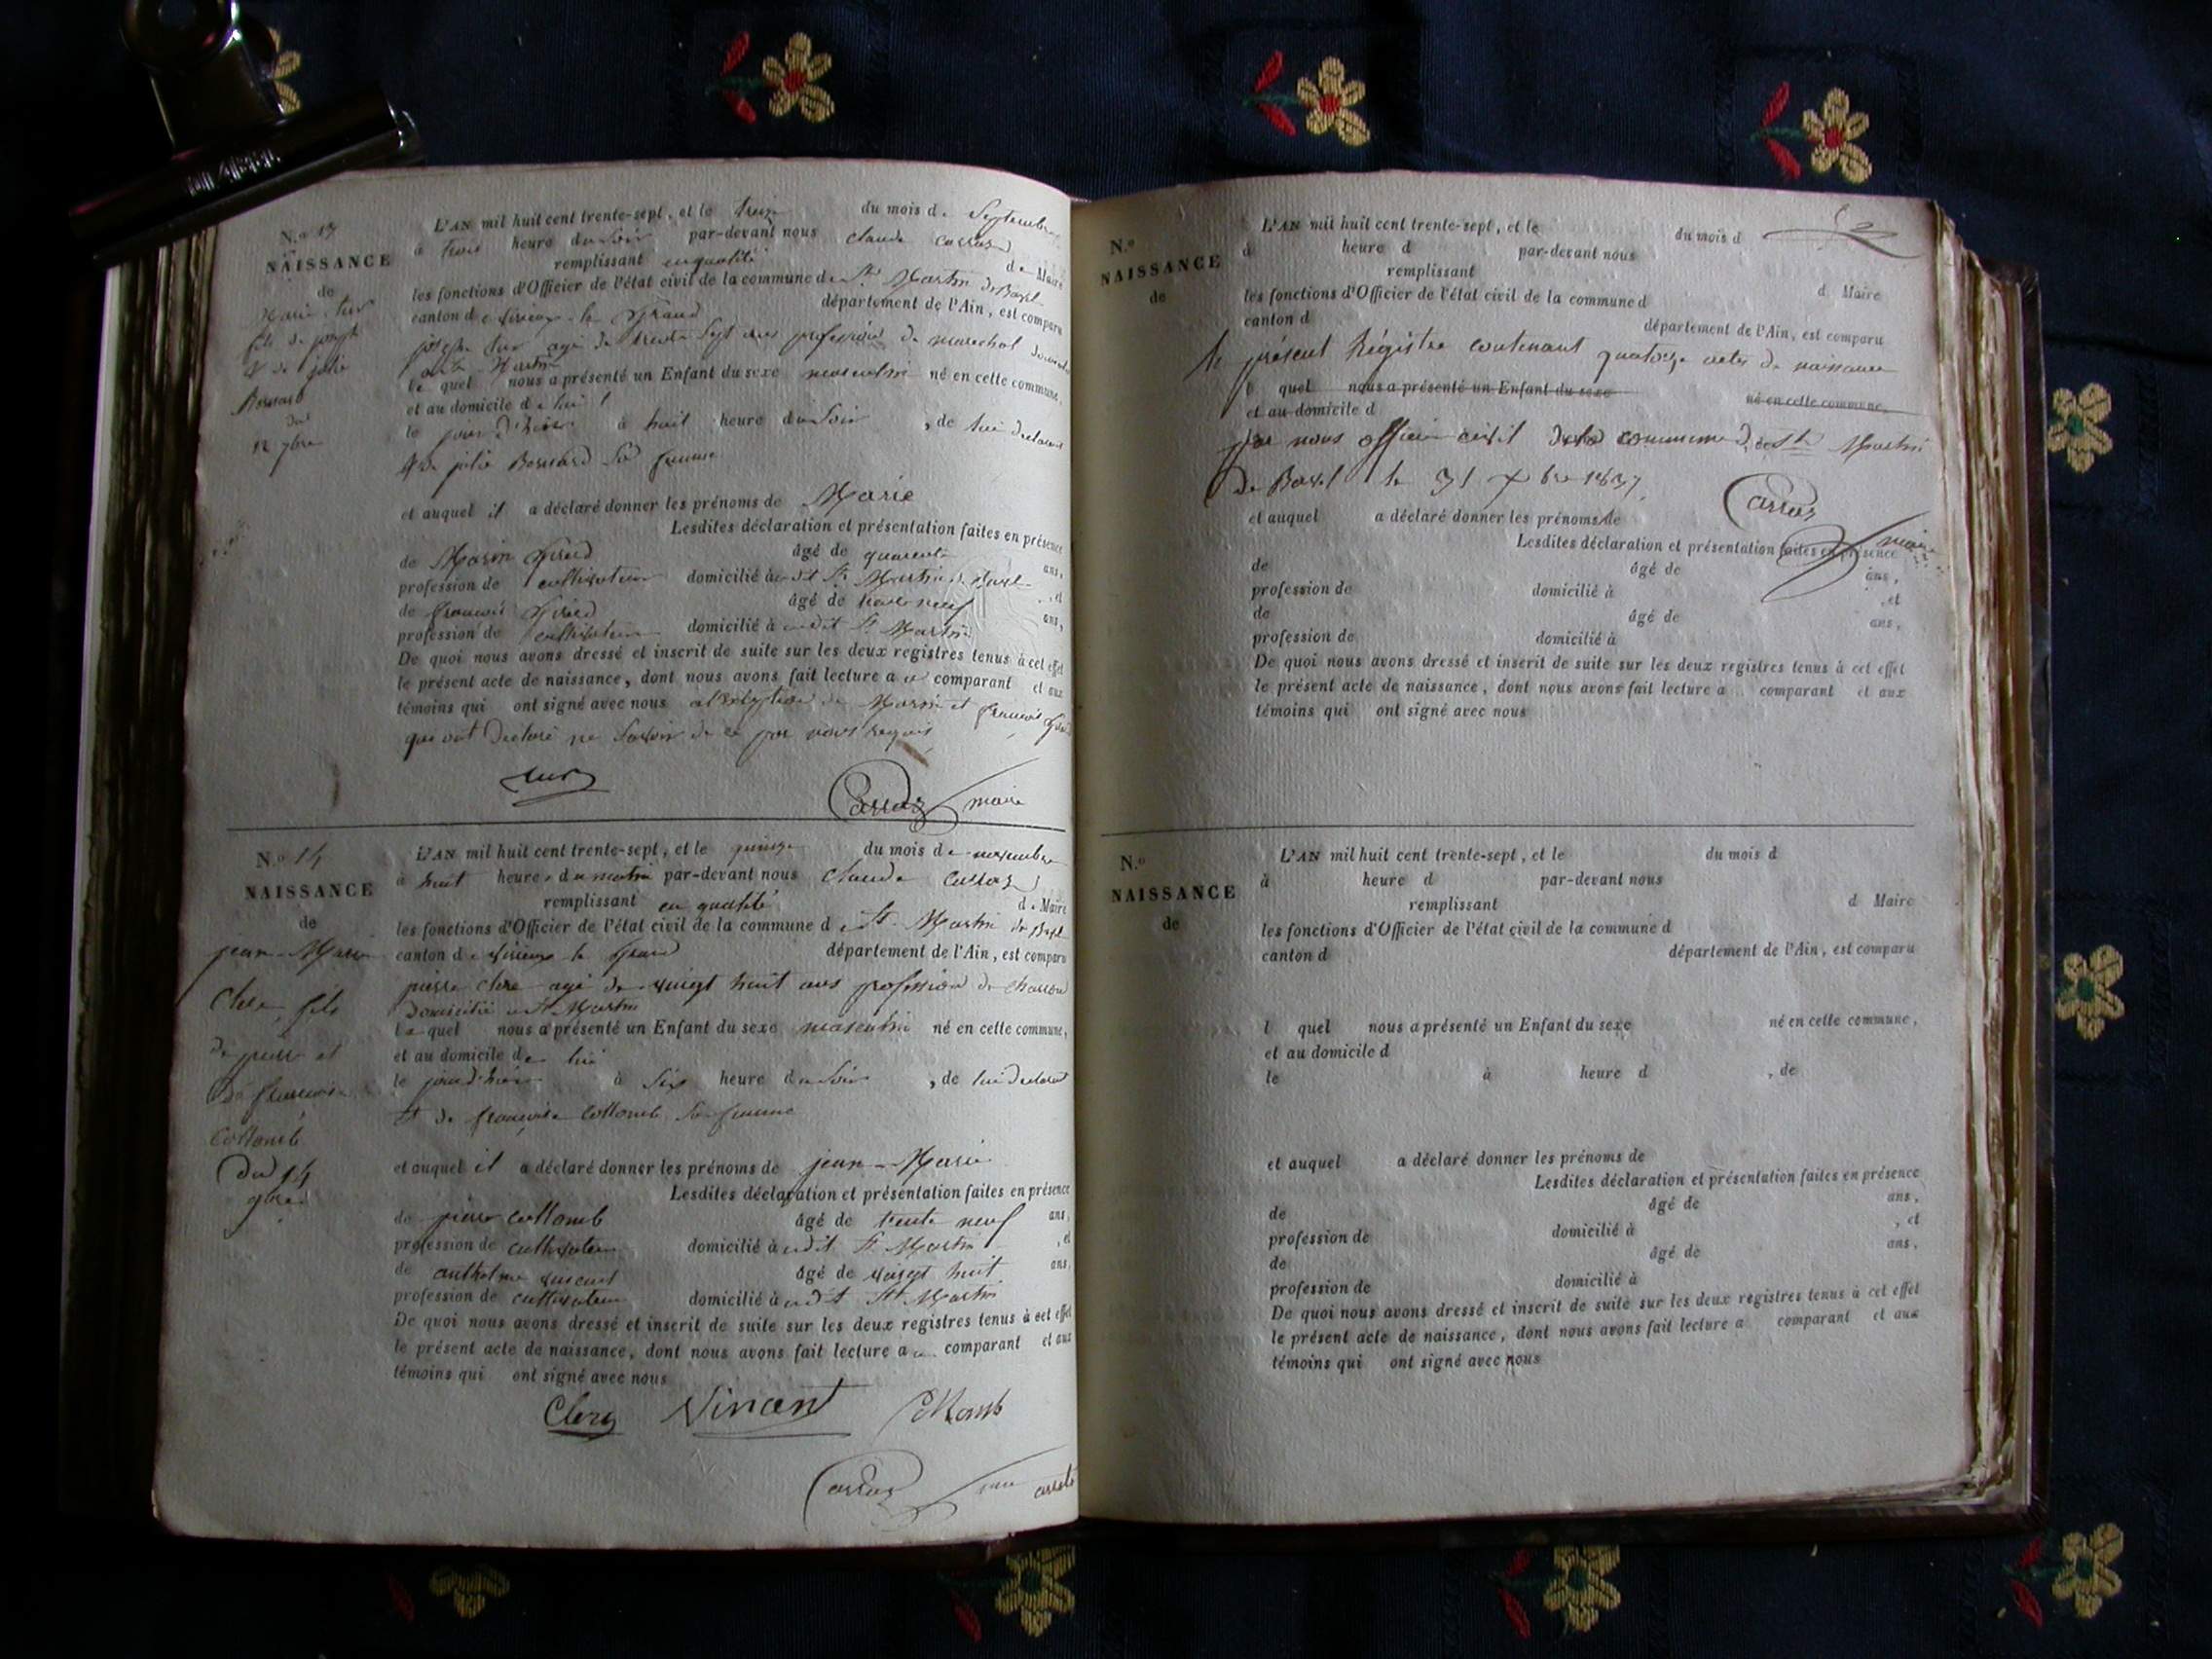 N.o 13
NAISSANCE
de
Marie
fils de joseph
& de julie
Bernard
du
12 7bre
L'AN mil huit cent trente-sept, et le treize du mois de Septembre
à trois heure du Soir par-devant nous claude carraz
remplissant en qualité de Maire
les fonctions d'Officier de l'état civil de la commune de St Martin de Bavel
canton de virieux le Grand département de l'Ain, est comparu
joseph agé de trente Sept ans profession de marechal
a St Martin
le quel nous a présenté un Enfant du sexe masculin né en cette commune,
et au domicile de lui
le jour d'hier à huit heure du Soir, de lui declarant
& de julie Bernard Sa femme
et auquel il a déclaré donner les prénoms de Marie
Lesdites déclaration et présentation faites en présence
de Marin âgé de quarante ans,
profession de cultivateur domicilié à udit St Martin de Bavel et
de francois âgé de trente neuf ans,
profession de cultivateur domicilié à udit St Martin
De quoi nous avons dressé et inscrit de suite sur les deux registres tenus à cet effet
le présent acte de naissance, dont nous avons fait lecture au comparant et aux
témoins qui ont signé avec nous a l'exception de Marin et francois
qui ont declaré ne Savoir de ce par nous requis
Carraz maire
N.o 14
NAISSANCE
de
jean-Marie
Clerc fils
de pierre et
de francoise
Collomb
du 14
9bre
L'AN mil huit cent trente-sept, et le quinze du mois de novembre
à huit heure du matin par-devant nous claude carraz
remplissant en qualité de Maire
les fonctions d'Officier de l'état civil de la commune de St Martin de Bavel
canton de virieux le Grand département de l'Ain, est comparu
pierre clerc agé de vingt huit ans profession de charron
Domicilié a St Martin
le quel nous a présenté un Enfant du sexe masculin né en cette commune,
et au domicile de lui
le jour d'hier à Six heure du Soir, de lui declarant
et de françoise Collomb Sa femme
et auquel il a déclaré donner les prénoms de jean-Marie
Lesdites déclaration et présentation faites en présence
de pierre Collomb âgé de trente neuf ans,
profession de cultivateur domicilié à udit St Martin, et
de anthelme vincent âgé de vingt huit ans
profession de cultivateur domicilié à udit St Martin
De quoi nous avons dressé et inscrit de suite sur les deux registres tenus à cet effet
le présent acte de naissance, dont nous avons fait lecture au comparant et aux
témoins qui ont signé avec nous
Clerc Vincent Collomb
Carraz maire
N.o
NAISSANCE
de
L'AN mil huit cent trente-sept, et le du mois d
à heure d par-devant nous
remplissant d Maire
les fonctions d'Officier de l'état civil de la commune d
canton d département de l'Ain, est comparu
le présent Régistre contenant quatorze actes de naissance
l quel nous a présenté un Enfant du sexe né en cette commune,
et au domicile d
par nous officier civil de la commune de St Martin
de Bavel le 31 Xbre 1837
Carraz
maire
et auquel a déclaré donner les prénoms de
Lesdites déclaration et présentation faites en présence
de âgé de ans,
profession de domicilié à , et
de âgé de ans,
profession de domicilié à
De quoi nous avons dressé et inscrit de suite sur les deux registres tenus à cet effet
le présent acte de naissance, dont nous avons fait lecture a comparant et aux
témoins qui ont signé avec nous
N.o
NAISSANCE
de
L'AN mil huit cent trente-sept, et le du mois d
à heure d par-devant nous
remplissant d Maire
les fonctions d'Officier de l'état civil de la commune d
canton d département de l'Ain, est comparu
l quel nous a présenté un Enfant du sexe né en cette commune,
et au domicile d
le à heure d , de
et auquel a déclaré donner les prénoms de
Lesdites déclaration et présentation faites en présence
de âgé de ans,
profession de domicilié à , et
de âgé de ans,
profession de domicilié à
De quoi nous avons dressé et inscrit de suite sur les deux registres tenus à cet effet
le présent acte de naissance, dont nous avons fait lecture a comparant et aux
témoins qui ont signé avec nous